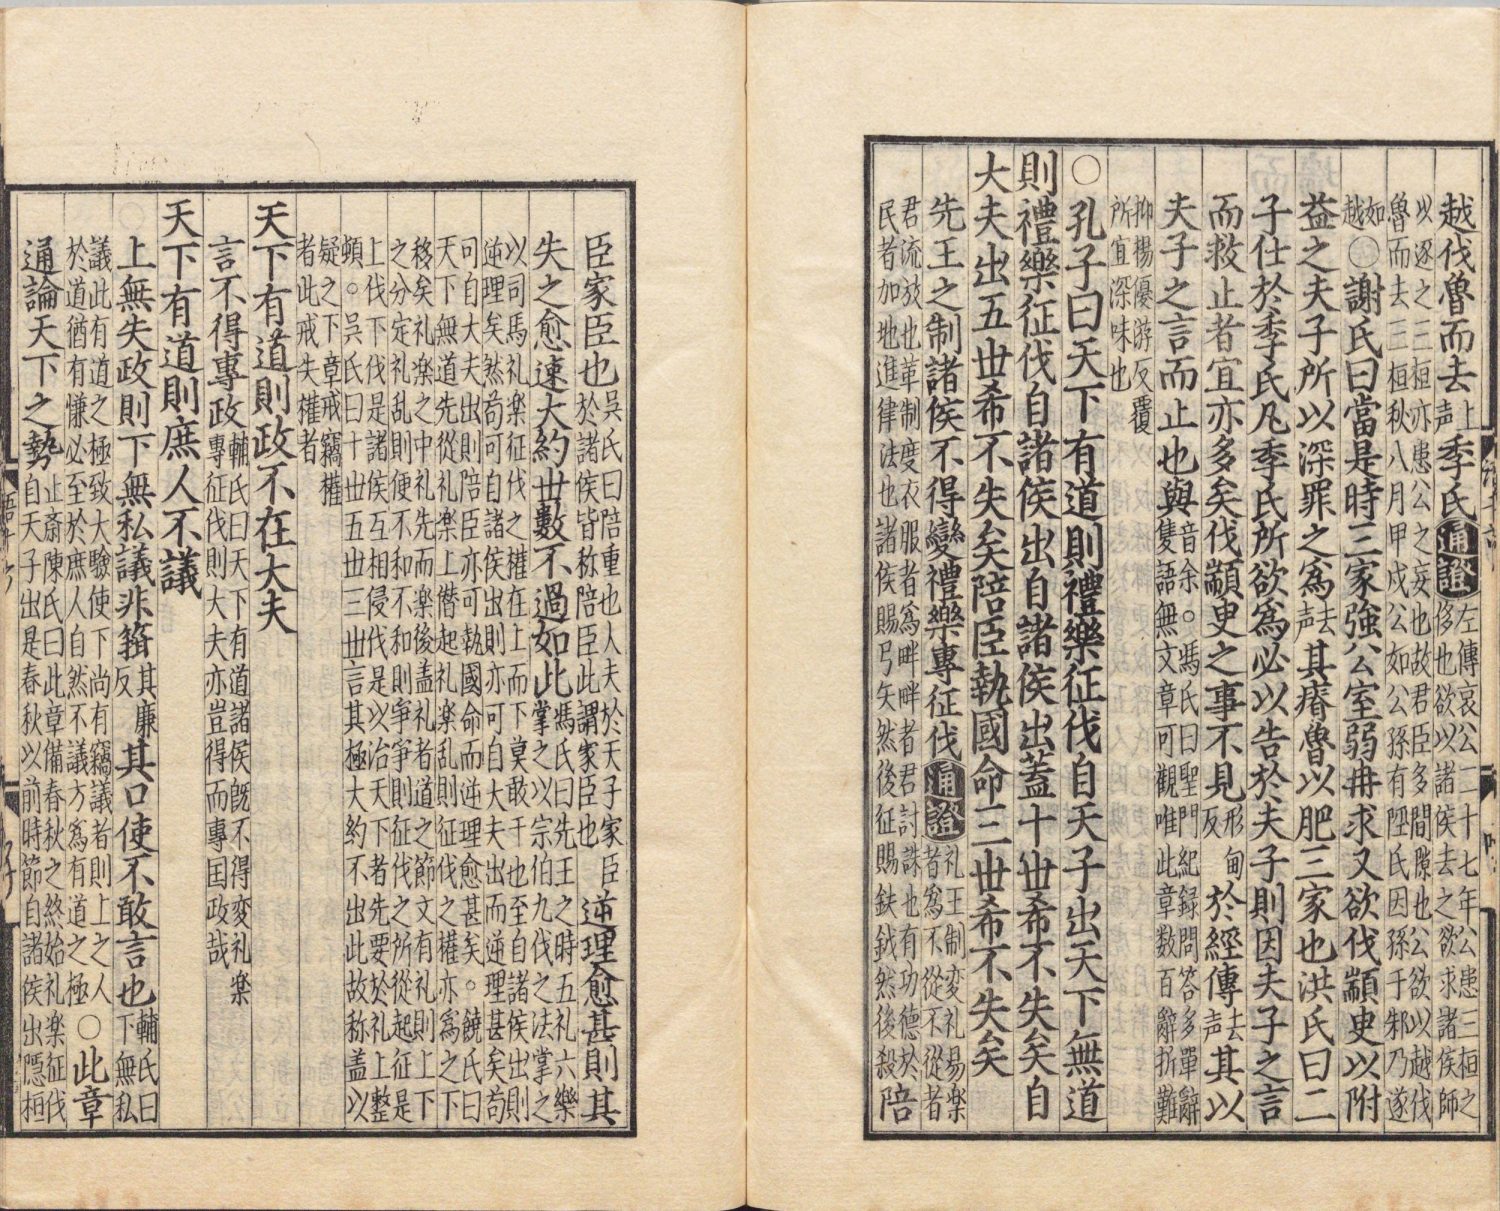 越伐魯而去上聲季氏通證左傳哀公二十七年公患三桓之侈也欲以諸侯去之欲求諸侯師
以逐之三桓亦患公之妄也故君臣多間隙也公欲以越伐魯而去三桓秋八月甲戌公如公孫有陘氏因孫于邾乃遂
如越○謝氏曰當是時三家強公室弱冉求又欲伐顓臾以附
益之夫子所以深罪之爲去聲其瘠魯以肥三家也洪氏曰二
子仕於季氏凡季氏所欲爲必以告於夫子則因夫子之言
而救止者宜亦多矣伐顓臾之事不見形甸反於經傳去聲其以
夫子之言而止也與音余○馮氏曰聖門紀録問答多單辭隻語無文章可觀唯此章数百辭折難
抑揚優游反覆所宜深味也
○孔子曰天下有道則禮樂征伐自天子出天下無道
則禮樂征伐自諸侯出自諸侯出蓋十世希不失矣自
大夫出五世希不失矣陪臣執國命三世希不失矣
先王之制諸侯不得變禮樂專征伐通證礼王制変礼易楽者爲不從不從者
君流放也革制度衣服者爲畔畔者君討誅也有功德於民者加地進律法也諸侯賜弓矢然後征賜鈇鉞然後殺陪
臣家臣也吳氏曰陪重也人夫於天子家臣於諸侯皆称陪臣此謂家臣也逆理愈甚則其
失之愈速大約世數不過如此馮氏曰先王之時五礼六樂掌之以宗伯九伐之法掌之
以司馬礼楽征伐之權在上而下莫敢干也至自諸侯出則逆理矣然苟可自諸侯出則亦可自大夫出而逆理甚矣苟
可自大夫出則陪臣亦可執國命而逆理愈甚矣○饒氏曰天下無道先從礼楽上僭起礼楽乱則征伐之權亦爲之下
移矣礼楽之中礼先而楽後盖礼者道之節文有礼則上下之分定礼乱則便不和不和則爭爭則征伐之所從起征是
上伐下伐是諸侯互相侵伐是以治天下者先要於礼上整頓○吳氏曰十世五世三世言其極大約不出此故称盖以
疑之下章戒竊權者此戒失權者
天下有道則政不在大夫
言不得專政輔氏曰天下有道諸侯既不得変礼楽專征伐則大夫亦豈得而專国政哉
天下有道則庶人不議
上無失政則下無私議非箝其廉反其口使不敢言也輔氏曰下無私
議此有道之極致大驗使下尚有竊議者則上之人於道猶有慊必至於庶人自然不議方爲有道之極○此章
通論天下之勢止齋陳氏曰此章備春秋之終始礼楽征伐自天子出是春秋以前時節自諸侯出隱桓